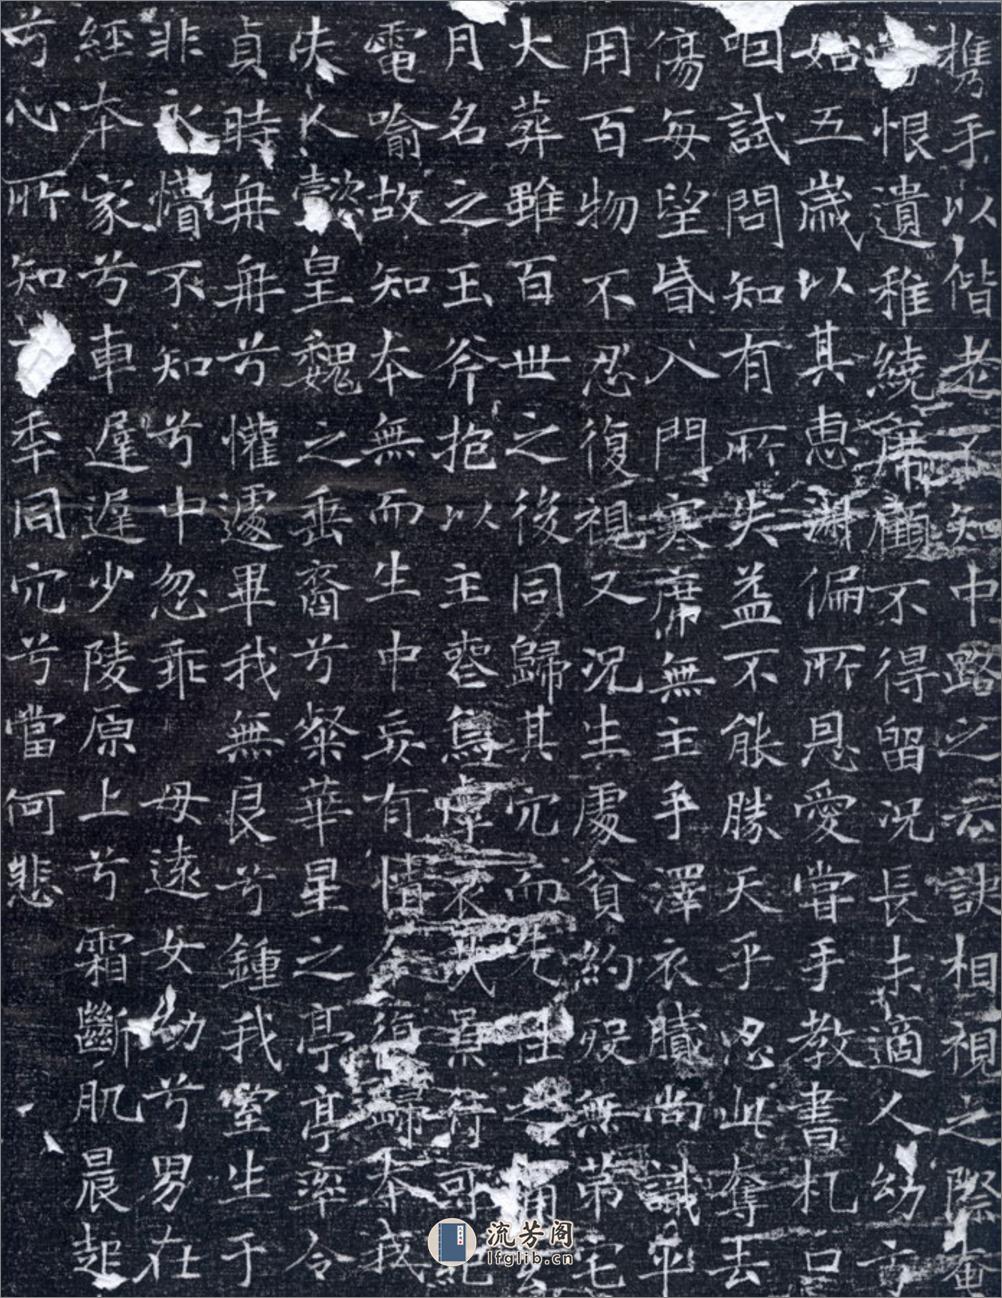 攜手以偕老不知中路之云訣相視之際奄
恨遺稚繞席顧不得留况長才適人幼方
始五歲以其惠淑偏所恩愛嘗手教書札口
咱試問知有所失益不能勝天乎忍此奪去
傷每望昏入門寒席無主手澤衣膩尚識平
用百物不忍復視又况生處貧約歿無第宅
大葬雖百世之後同歸其穴而先往之痛玄
月名之玉斧抱以主喪焉嗚
電喻故知本無而生中妄有情今復歸本我
夫人懿皇魏之垂裔兮粲華星之亭亭率令
貞時冉冉兮懽遽畢我無良兮鍾我室生于
非永懵不知兮中忽乖 母遠女幼兮男在
經本家兮車遲遲少陵原上兮霜斷肌晨起
兮心所知 年同穴兮當何悲
流芳阁
lfglib.cn